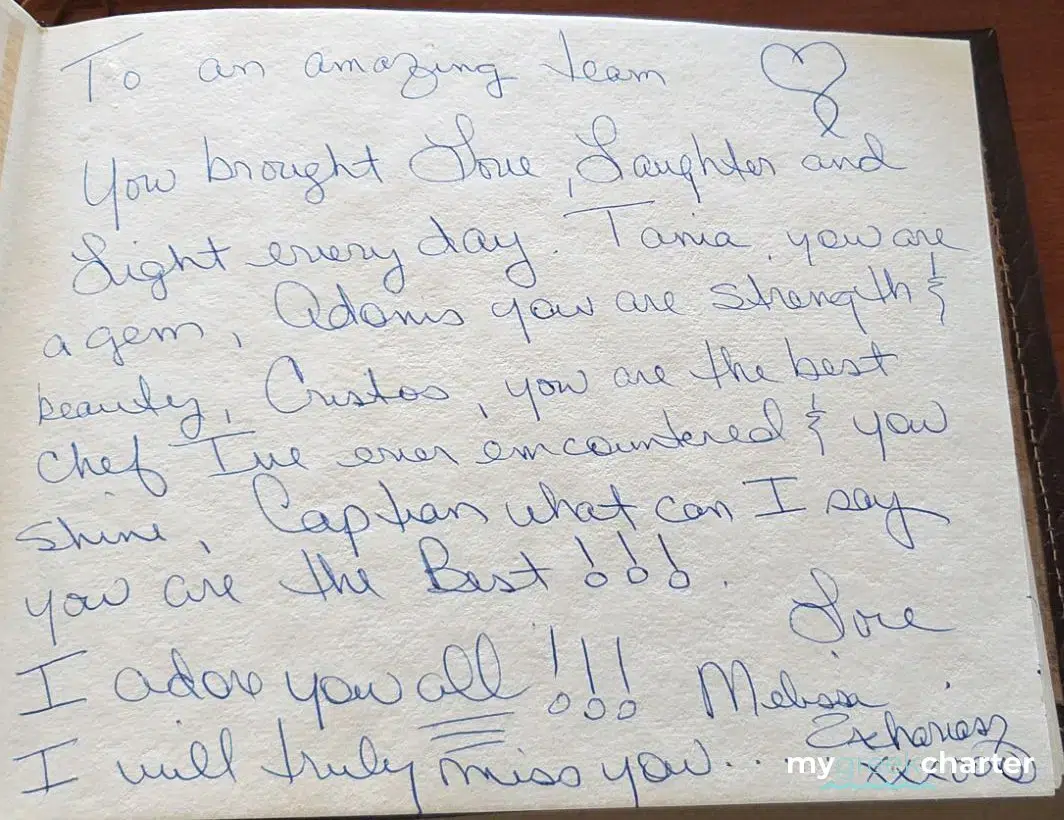 To an amazing team
You brought Love, Laughter and
Light every day. Tania, you are
a gem, Adonis you are strength &
beauty, Cristos, you are the best
chef I've ever encountered & you
shine, Captian what can I say
you are the Best !!!.
Love
I adore you all !!! Melissa
I will truly miss you..
xxxooo
my charter